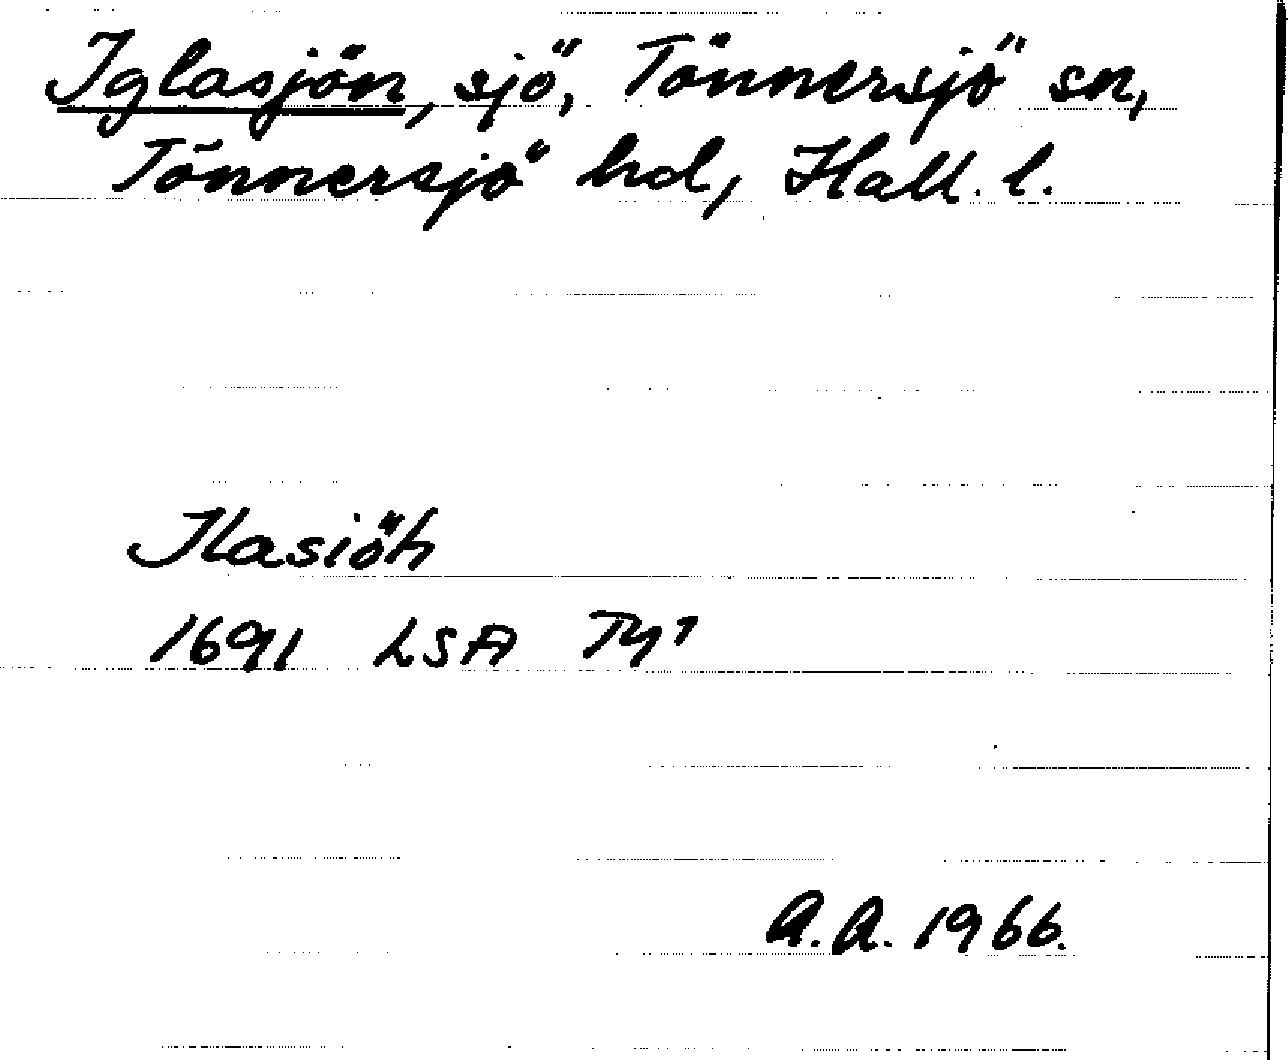 Iglasjön, sjö, Tönnersjö sn,
Tönnersjö hd, Hall. l.
Ilasiöh
1691 LSA Ty1
A.A. 1966.